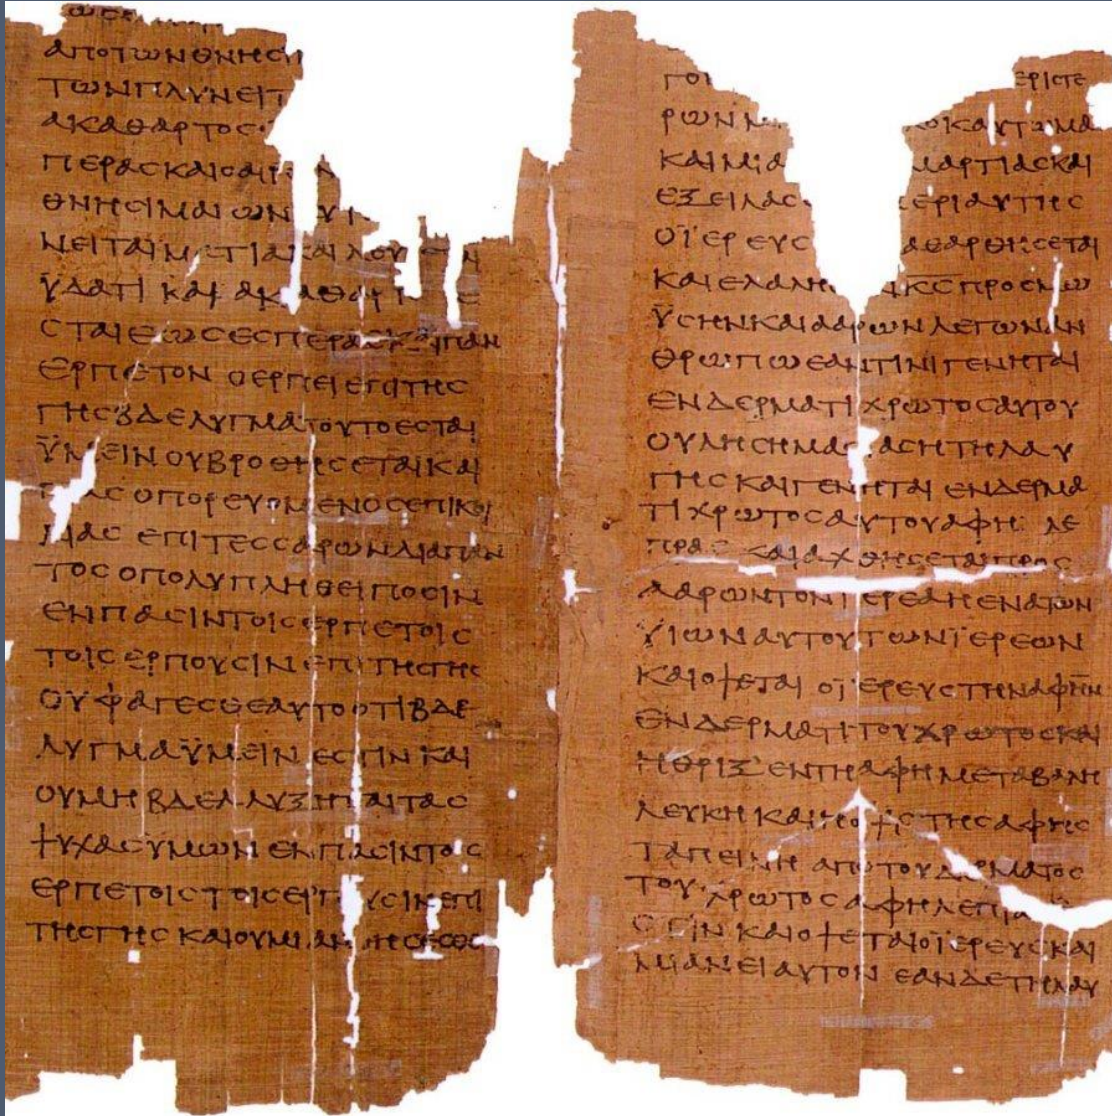 ΑΠΟΤΩΝΘΝΗCΙ
ΤΩΝΠΛΥΝΕΙΤ
ΑΚΑΘΑΡΤΟC
ΠΕΡΑCΚΑΙΟΑΙΡ
ΘΝΗCΙΜΑΙΩΝ
ΝΕΙΤΑΙΜΑΤΙΑΚΑΙΛΟΥ
ΫΔΑΤΙ ΚΑΙ ΑΚΑΘΑΡ
CΤΑΙΕΩCΕCΠΕΡΑCΚΑΙΠΑΝ
ΕΡΠΕΤΟΝ ΟΕΡΠΕΙΕΠΙΤΗC
ΓΗCΒΔΕΛΥΓΜΑΤΟΥΤΟΕCΤΑΙ
ΫΜΕΙΝΟΥΒΡΟΘΗCΕΤΑΙΚΑΙ
ΠΑCΟΠΟΡΕΥΟΜΕΝΟCΕΠΙΚΟΙ
ΛΙΑC ΕΠΙΤΕCCΑΡΩΝΔΙΑΠΑΝ
ΤΟCΟΠΟΛΥΠΛΗΘΕΙΠΟCΙΝ
ΕΝΠΑCΙΝΤΟΙCΕΡΠΕΤΟΙC
ΤΟΙCΕΡΠΟΥCΙΝΕΠΙΤΗCΓΗC
ΟΥΦΑΓΕCΘΕΑΥΤΟΟΤΙΒΔΕ
ΛΥΓΜΑΫΜΕΙΝ ΕCΤΙΝ ΚΑΙ
ΟΥΜΗΒΔΕΛΛΥΞΗΤΑΙΤΑC
ΨΥΧΑCΥΜΩΝ ΕΝΠΑCΙΝΤΟΙC
ΕΡΠΕΤΟΙCΤΟΙCΕΡΠΟΥCΙΝΕΠΙ
ΤΗCΓΗC ΚΑΙΟΥΜΙΑΝΘΗCΕCΘΕ
ΓΟ ΕΡΙCΤΕ
ΡΩΝΝ ΚΑΥΤΩΜΑ
ΚΑΙΜΙΑ ΜΑΡΤΙΑCΚΑΙ
ΕΞΕΙΛΑC ΕΡΙΑΥΤΗC
ΟΪΕΡΕΥC ΑΘΑΡΘΗCΕΤΑΙ
ΚΑΙΕΛΑΛΗ ΚCΠΡΟCΜΩ
ΫCΗΝΚΑΙΑΑΡΩΝΛΕΓΩΝΑΝ
ΘΡΩΠΩΕΑΝΤΙΝΙΓΕΝΗΤΑΙ
ΕΝΔΕΡΜΑΤΙΧΡΩΤΟCΑΥΤΟΥ
ΟΥΛΗCΗΜΑCΙΑCΗΤΗΛΑΥ
ΓΗCΚΑΙΓΕΝΗΤΑΙ ΕΝΔΕΡΜΑ
ΤΙΧΡΩΤΟCΑΥΤΟΥΑΦΗ ΛΕ
ΠΡΑC ΚΑΙΑΧΘΗCΕΤΑΙΠΡΟC
ΑΑΡΩΝΤΟΝΪΕΡΕΑΗΕΝΑΤΩΝ
ΫΙΩΝΑΥΤΟΥΤΩΝΪΕΡΕΩΝ
ΚΑΙΟΨΕΤΑΙ ΟΪΕΡΕΥCΤΗΝΑΦΗΝ
ΕΝΔΕΡΜΑΤΙΤΟΥΧΡΩΤΟCΚΑΙ
ΗΘΡΙΞ ΕΝΤΗΑΦΗΜΕΤΑΒΑΛΗ
ΛΕΥΚΗ ΚΑΙΗΟΨΙCΤΗCΑΦΗC
ΤΑΠΕΙΝΗ ΑΠΟΤΟΥΔΕΡΜΑΤΟC
ΤΟΥ ΧΡΩΤΟCΑΦΗΛΕΠΡΑ
CΤΙΝ ΚΑΙΟΨΕΤΑΙΟΪΕΡΕΥCΚΑΙ
ΜΙΑΝΕΙΑΥΤΟΝ ΕΑΝΔΕΤΗΛΑΥ